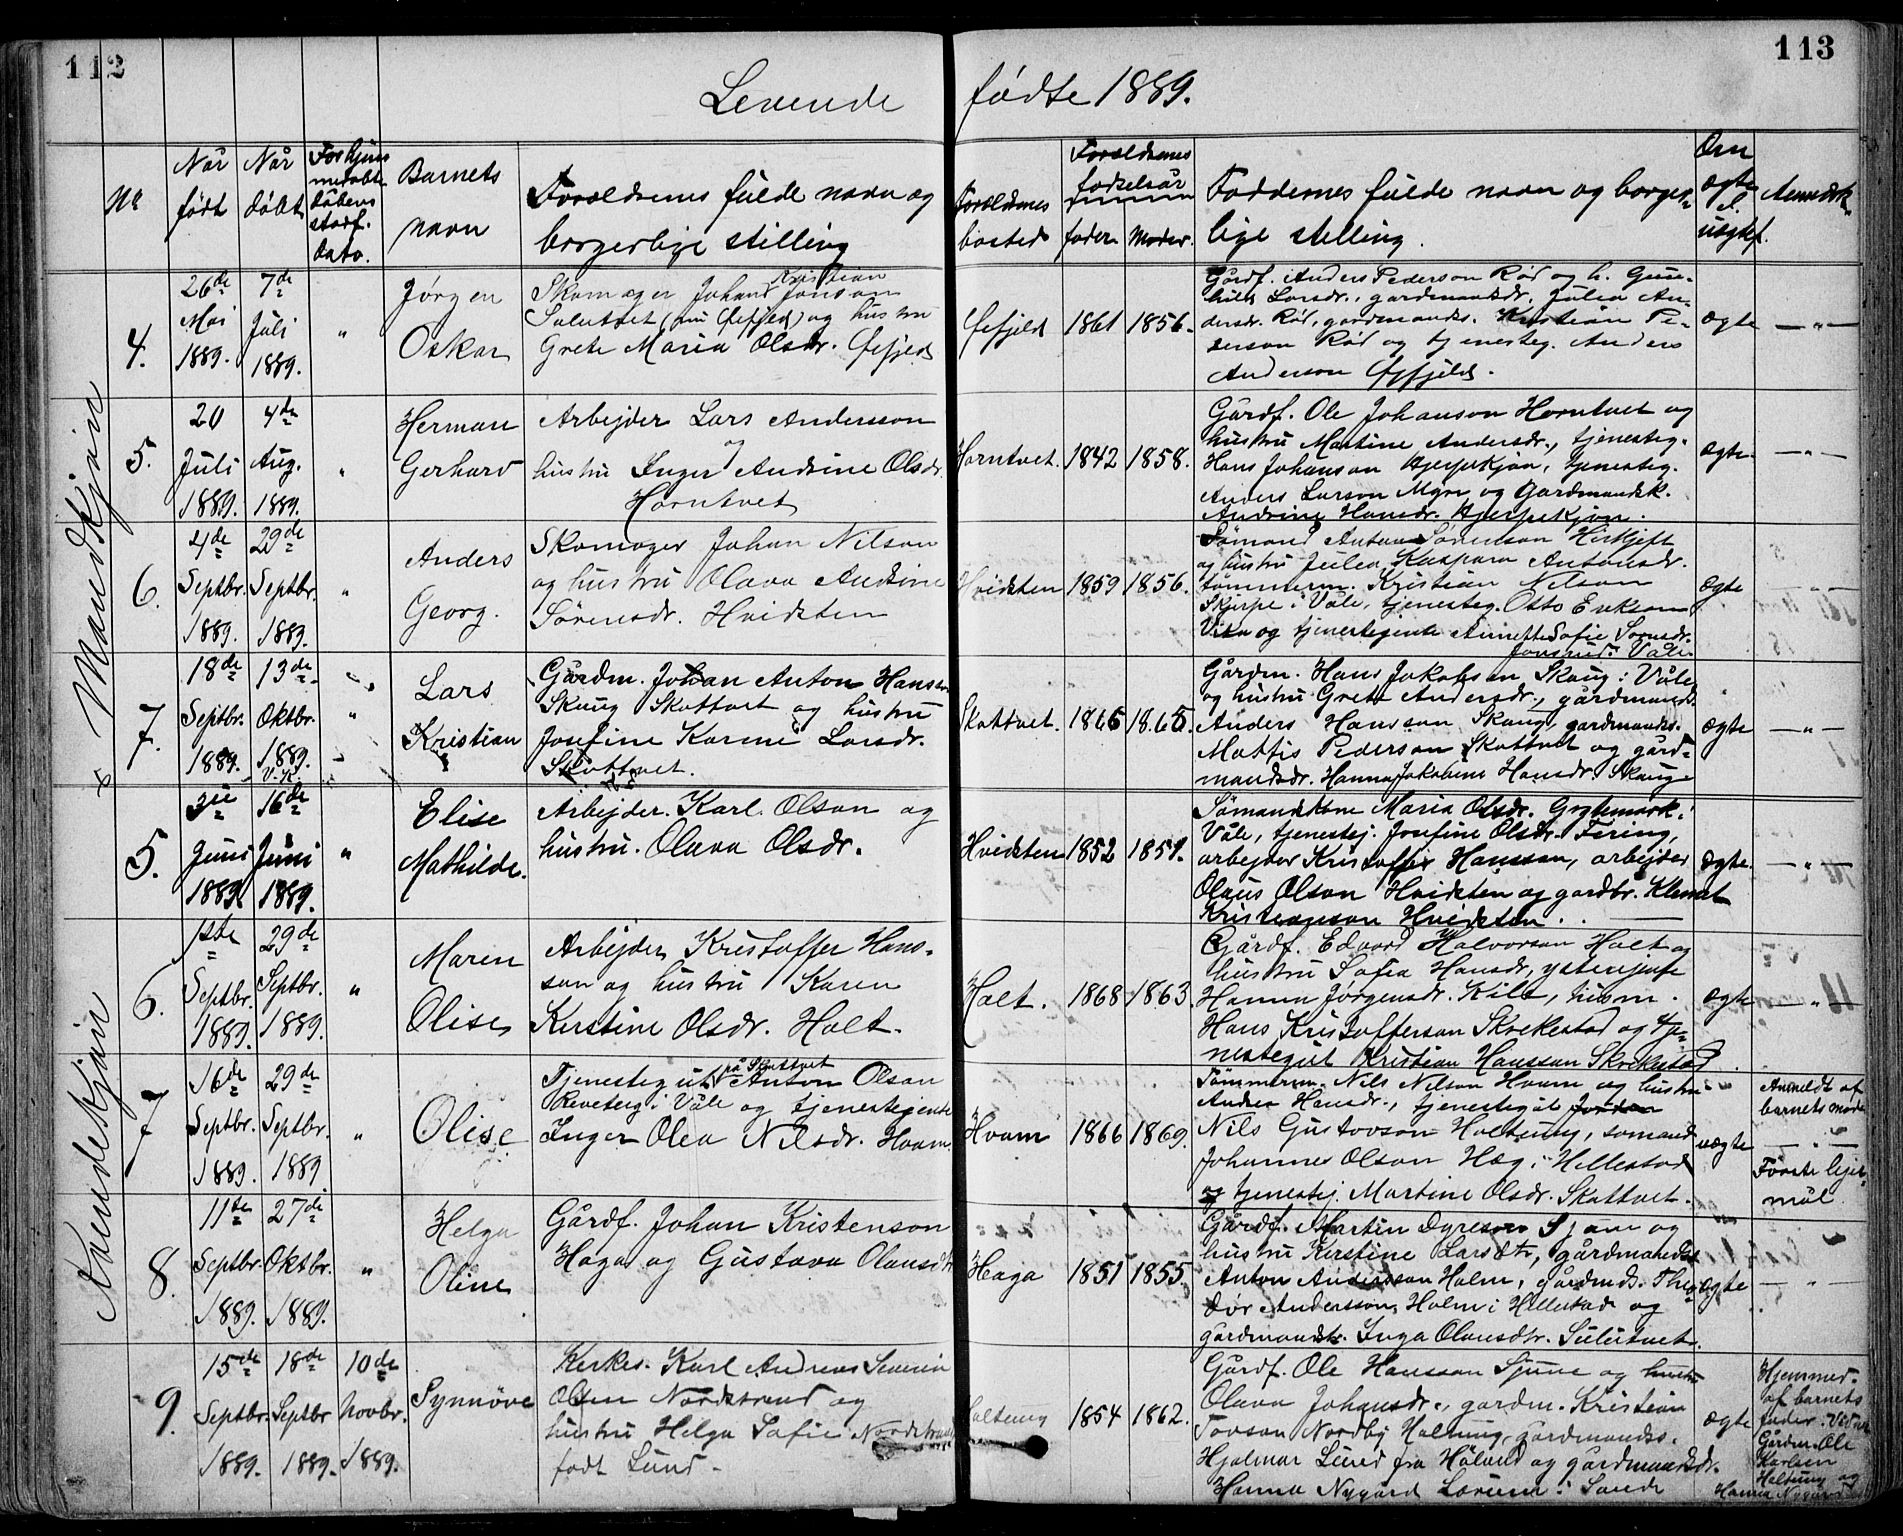 112
113
Levende fødte 1889.
No
Når født
Når døbt
For hjemmedøbte dåbens stadf. dato.
Barnets navn
Forældrenes fulde navn og borgerlige stilling
Forældrenes bosted
Forældrenes fødselsår
faderen
Moder.
Faddernes fulde navn og borger-
lige stilling.
Om ægte el. uægte f.
Anmærk.
Mandkjøn
4.
26de Mai 1889.
7de Juli 1889.
"
Jørgen
Oskar
Skomager Johand Kristian Jonson
Sulutvet (nu Øefjeld) og hustru
Grete Maria Olsdr. Øefjeld
Øefjeld
1861
1856.
Gårdf. Anders Pederson Rød og h. Gune-
hild Larsdr., gardmandsdr. Julia An-
dersdr. Rød, gardmands. Kristian Pe-
derson Rød og tjenesteg. Anders
Anderson Øyfjeld.
ægte
— " —
5.
20 Juli 1889.
4de Aug. 1889.
"
Herman
Gerhard
Arbejder Lars Andersson
og
hustru Inger Andrine Olsdr.
Horntvet
Horntvet.
1842
1858.
Gårdf. Ole Johanson Horntvet og
hustru Martine Andersdr., tjenesteg.
Hans Johanson Hjerpekjøn, tjenesteg.
Anders Larson Myre og Gardmandsk.
Andrine Hansdr. Hjerpekjøn.
ægte.
— " —
6.
4de Septbr. 1889.
29de Septbr. 1889.
"
Anders
Georg.
Skomager Johan Nilson
og hustru Olava Andrine
Sørensdr. Hvidsten
Hvidsten
1859
1856.
Sømand Anton Sørenson Hirkjeft
og hustru Julea Kaspara Antonsdr.
tømmerm. Kristian Nilson
Skjerpe i Våle, tjenesteg. Otto Erikson
Viken og tjenestegjente Annette Sofie Sørnsdr.
Jonsrud i Våle
ægte
7.
18de Septbr. 1889.
13de Oktbr. 1889.
V. K.
"
Lars
Kristian
Gårdm. Johan Anton Hansen
Skaug Skattvet og hustru
Josefine Karine Larsdr.
Skattvet.
Skattvet.
1865
1865.
Gårdm. Hans Jakobsen Skaug i Våle
og hustru Grete Andersdr., gårdmands.
Anders Hansson Skaug, gardmands.
Mattis Pederson Skattvet og gård-
mandsdr. Hanna Jakobine Hansdr. Skaug
ægte
— " —
Kvindekjøn
5.
3die Juni 1889.
16de Juni 1889.
"
Elise
Mathilde.
Arbejder. Karl Olson og
hustru. Olava Olsdr.
Hvidsten
1852
1851.
Sømandskone Maria Olsdr. Grytemark i
Våle, tjenestej. Josefine Olsdr. Firing,
arbejder Kristoffer Hansson, arbejder
Olaus Olson Hvidsten og gardbr. Klemet
Kristianson Hvidsten.
ægte.
— " —
6.
1ste Septbr. 1889.
29de Septbr. 1889.
"
Maren
Olise
Arbejder Kristoffer Hans-
son og hustru Karen
Kerstine Olsdr. Holt.
Holt.
1868
1863.
Gårdf. Edvard Halvorson Holt og
hustru Sofia Hansdr,
Hanna Jørgensdr. Kile, husm.
Hans Kristofferson Skrekestad og tje-
nestegut Kristian Hansson Skrekestad.
ægte
— " —
7
16de Septbr. 1889.
29de Septbr. 1889
"
Olise
Tjenestegut på Skattvet Anton Olson
Reveteig i Våle og tjenestegjente
Inger Olea Nilsdr. Hvam.
Hvam
1866
1869.
Tømmerm. Nils Nilson Hvam og hustru
Andrea Hansdr., tjenestegut
Nils Gustavson Holtung, sømand
Johannes Olson Hæg i Hillestad
og tjenestej. Martine Olsdr. Skattvet.
uægte
Anmeldt af
barnets moder
— " —
Første lejer-
mål.
8.
11te Septbr. 1889.
27de Oktbr. 1889.
"
Helga
Oline
Gårdf. Johan Kristenson
Haga og Gustava Olausdtr
Haga
1851
1855.
Gårdf. Martin Dyreson Sjøne og
hustru Kirstine Larsdtr, gårdmands.
Anton Andersson Holm, gårdmds. Theo-
dor Andersson Holm i Hillestad og
gårdmandsdtr. Inga Olausdtr. Sulutvet.
ægte
— " —
9.
15de Septbr. 1889.
18de Septbr 1889.
10de Novbr. 1889.
Synnøve
Kirkes. Karl Andreas Severin
Olsen Nordstrand og
hustru Helga Sofie Nordstrand
født Lund.
Holtung
1854
1862.
Gårdf. Ole Hansson Sjune og hustru
Olava Johansdr., gardm. Kristian
Torson Nordby Holtung, gårdmands.
Hjalmar Lund fra Hålund og gårdmandsdr.
Hanna Nygård Lørum i Sande
ægte
Hjemmed.
af barnets
fader. Vidner
Gårdm. Ole
Karlsen
Holtung og
Hanna Nygård